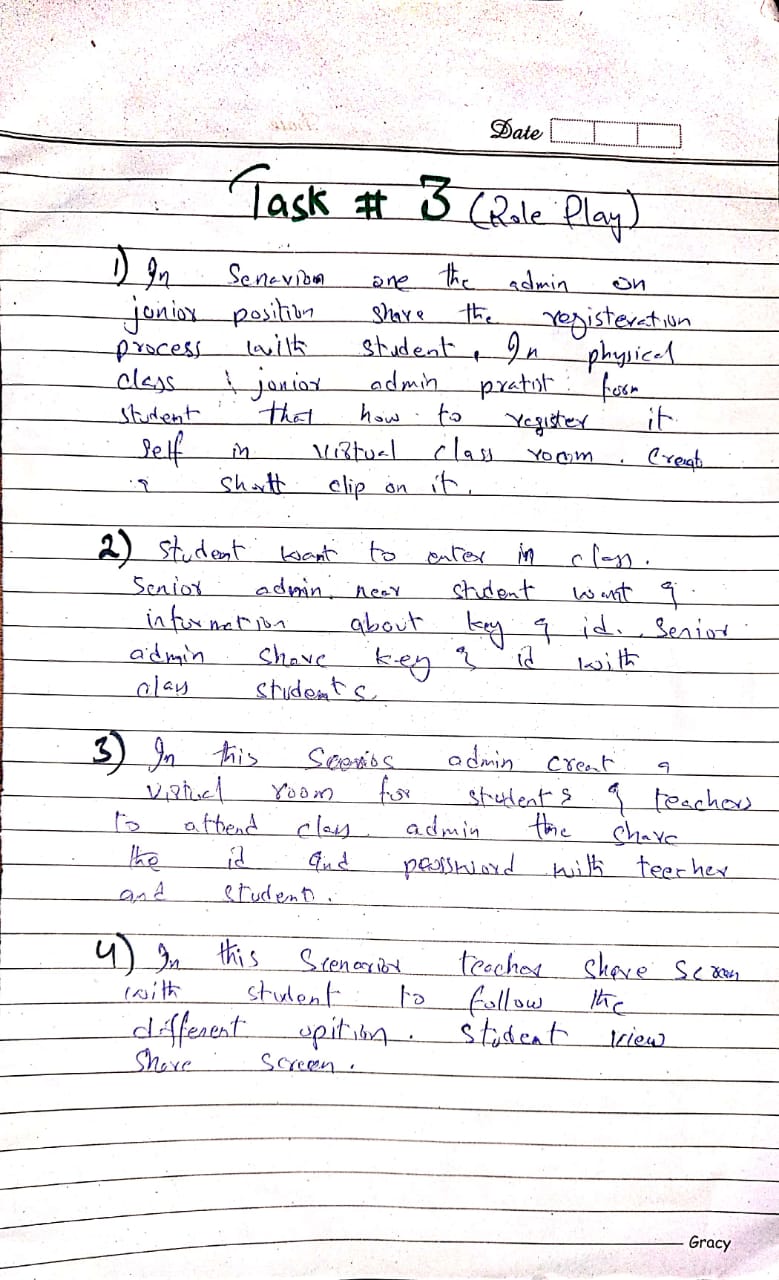 Date
Task # 3 (Role Play)
1) In Senavion one the admin on
junior position share the registeration
process with student, In physical
class junior admin from
student that how to register it
self in virtual class room. Creat
a short clip on it.
2) Student want to enter in class.
Senior admin near student want a
information about key & id. Senior
admin share key & id with
class students
3) In this admin creat a
virtual room for students & teachers
to attend class. admin the share
the id and password with teecher
and student.
4) In this Scenarion teacher share screen
with student to follow the
different opition. Student view
share screen.
Gracy